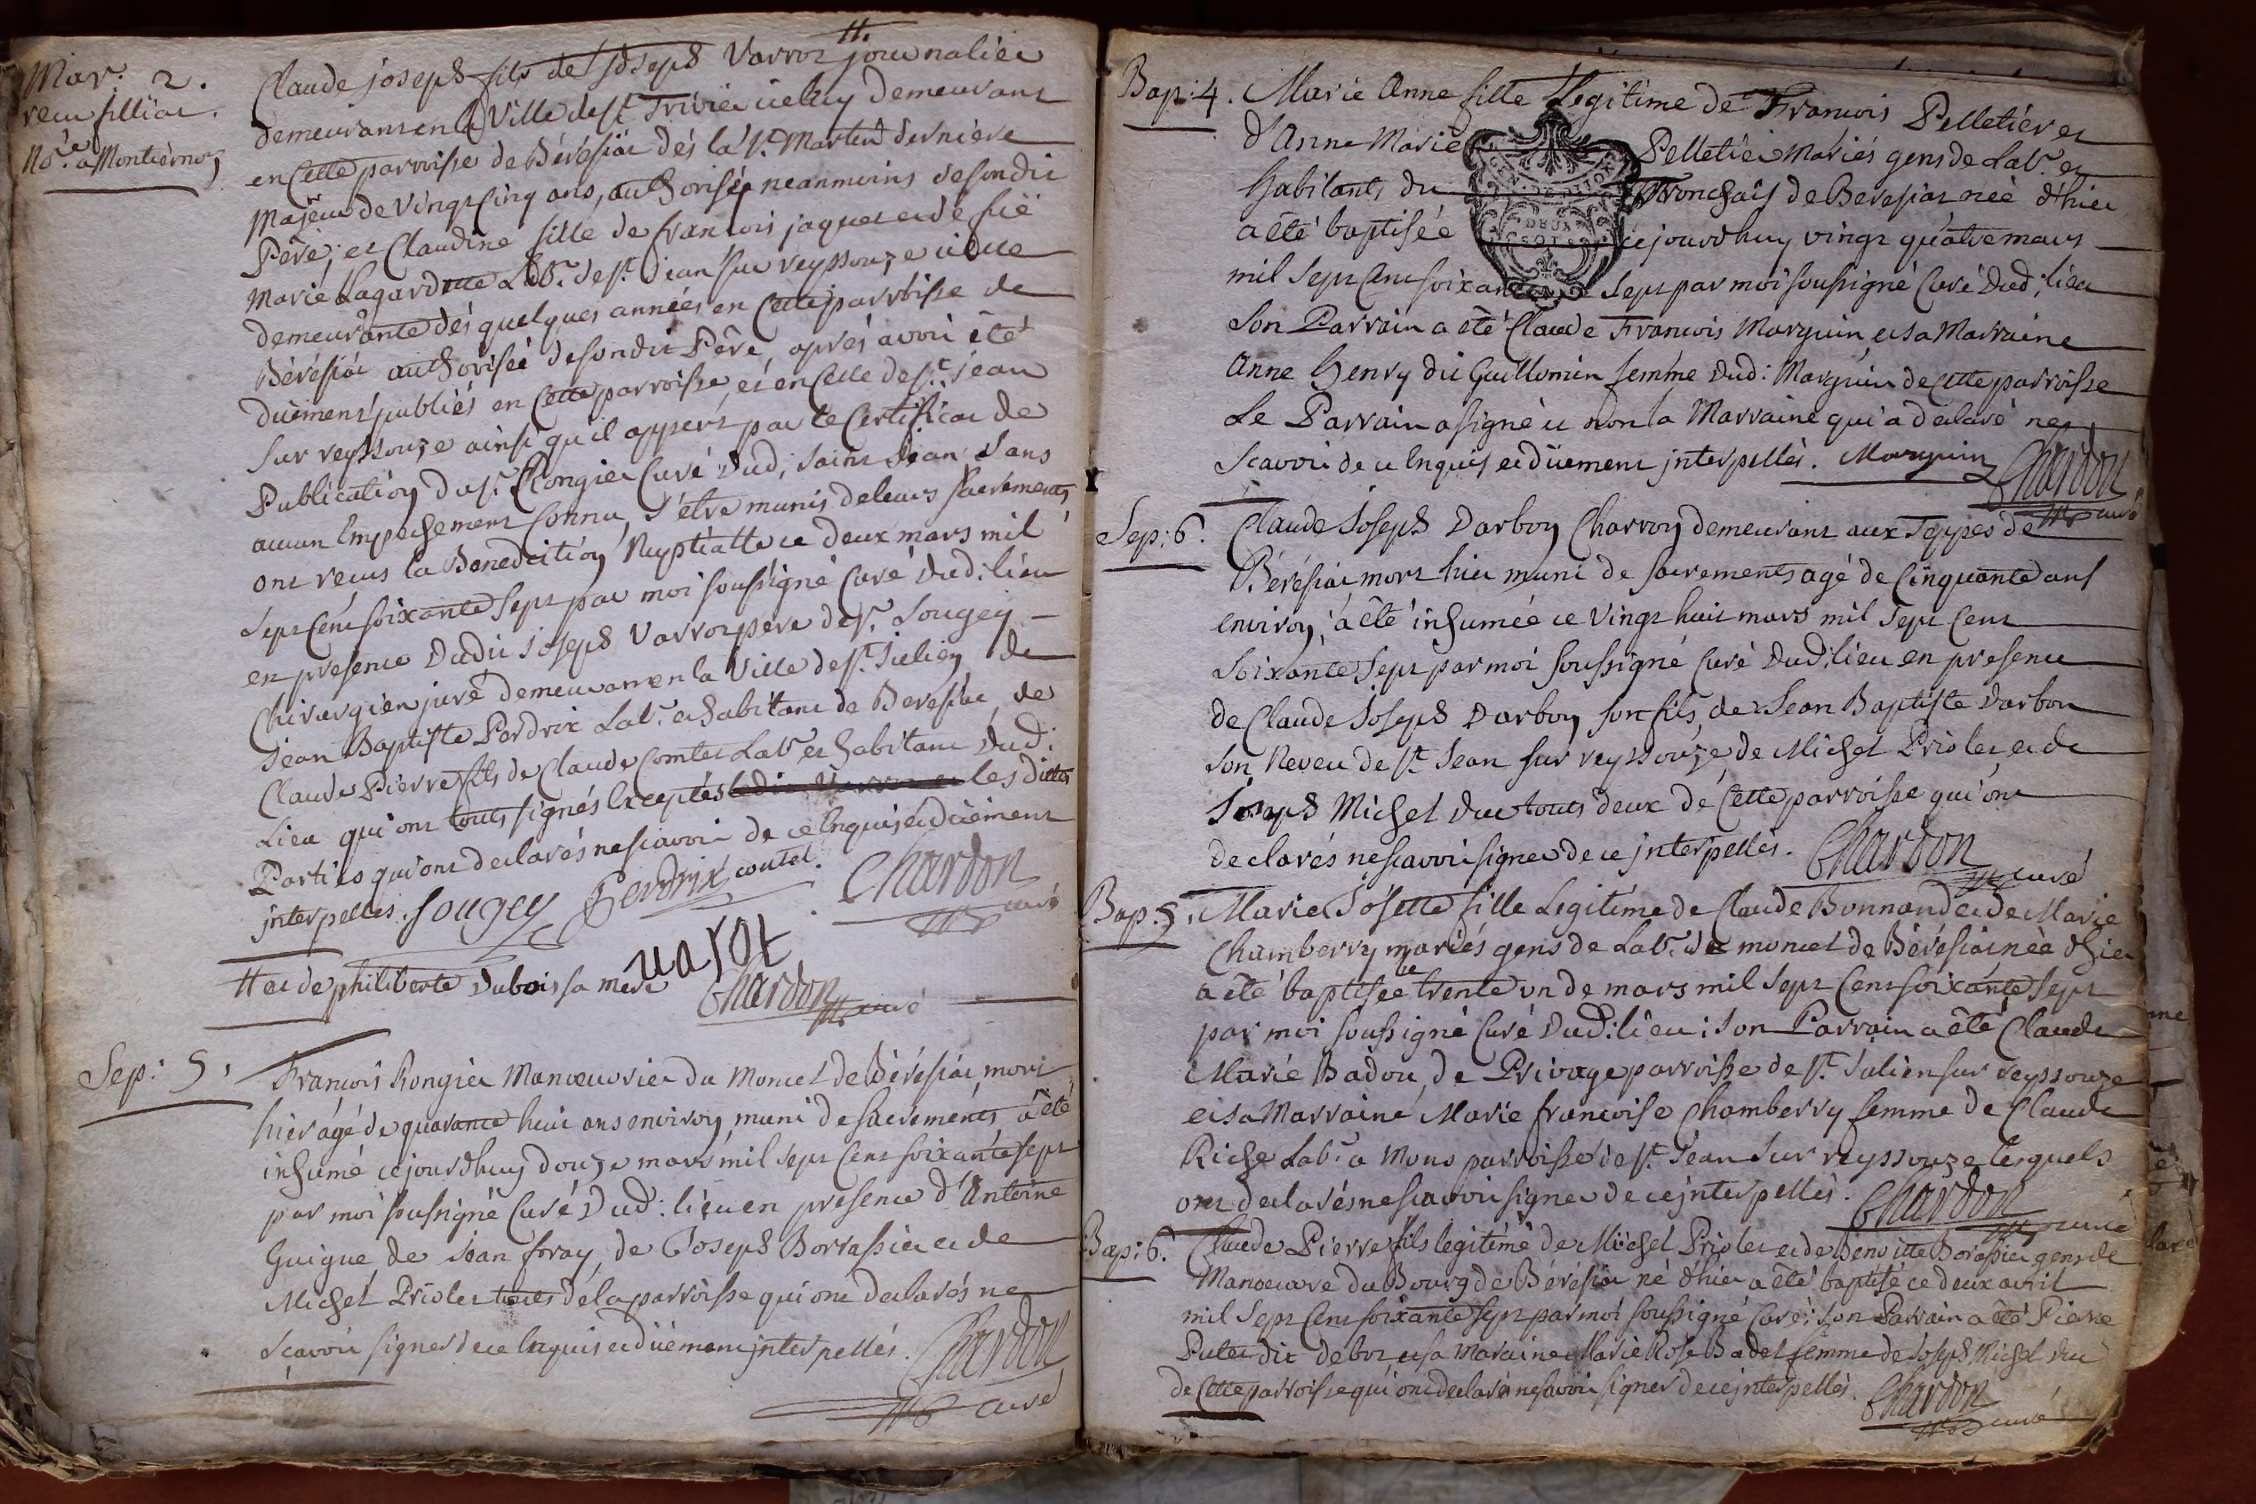 Mar: 2.
recu filliat
No.re a Montiernoz
tt.
Claude joseph fils de Joseph Varrot journalier
demeurant en la Ville de St. Trivier iceluy demeurant
en Cette parroisse de Béréziat dés la St. Martin derniere
Majeur de Vingt Cinq ans, authorisé neanmoins desondit
Pêre; et Claudine fille de francois jaquet et de fuë
Marie Lagardette Labr. de St. jean sur reyssouze icelle
demeurante dés quelques années en Cette parroisse de
Béréziat authorisée desondit Pêre, aprés avoir été
duëment publiés en Cette parroisse, et en Celle de St. jean
sur reyssouze ainsi qu'il appert par le Certificat de
Publication du Sr. Clongier Curé Dud; saint Jean sans
aucun Empechement Connu, s'être munis de leurs sacrements
ont recus la Benediction Nuptialle ce deux mars mil
Sept Cent soixante sept par moi soussigné Curé dud: lieu
en presence Dudit Joseph Varrot pere de Sr. Sougey
Chirurgien juré demeurant en la Ville de St. Julien de
Jean Baptiste Perdrix Labr. et habitant de Beresiat, de
Claude Pierre fils de Claude Comtet Labr et habitant Dud:
Lieu qui ont touts signés Exceptés les dittes
Parties qui ont declarés ne scavoir de ce Enquis et duëment
interpellés. Sougey Perdrix comtet. Chardon
curé
tt et de philiberte Dubois sa mere varot
Chardon
curé
Sep: 5.
Francois Rongier Manoeuvrier du Moncel de Béréziat mort
hier agé de quarante huit ans environ, muni de sacrements a été
inhumé ce jourd'huy douze mars mil sept Cent soixante sept
par moi soussigné Curé Dud: lieu en presence d'Antoine
Guigue de Jean foray, de Joseph Borrassier et de
Michel Priolet touts de la parroisse qui ont declarés ne
scavoir signer de ce Enquis et duëment interpellés. Chardon
curé
Bap: 4.
Marie Anne fille Legitime de Francois Pelletier et
d'Anne Marie Pelletier Mariés gens de Labr. et
habitants du Tronchais de Beresiat née d'hier
a été baptisée ce jourd'huy vingt quatre mars
mil sept Cent soixante sept par moi soussigné Curé Dud: lieu
Son Parrain a été Claude Francois Marguin et sa Marraine
Anne Henry dit Guillomin femme Dud: Marguin de Cette parroisse
Le Parrain a signé et non la Marraine qui a declaré ne
scavoir de ce Enquis et duëment interpellés. Marguin Chardon
curé
Sep: 6.
Claude Joseph Darbon Charron demeurant aux Teppes de
Béréziat mort hier muni de sacrements agé de Cinquante ans
environ, a été inhumée ce Vingt huit mars mil sept Cent
soixante sept par moi soussigné Curé Dud: lieu en presence
de Claude Joseph Darbon son fils, de Jean Baptiste Darbon
son Neveu de St. Jean sur reyssouze de Michel Priolet et de
Joseph Michel Duc touts deux de Cette parroisse qui ont
declarés ne scavoir signer de ce interpellés. Chardon
curé
Bap: 5.
Marie Josette fille Legitime de Claude Bonnand et de Marie
Chamberry mariés gens de Labr. de moncel de Béréziat née d'hier
a été baptisée ce trente un de mars mil sept Cent soixante sept
par moi soussigné Curé Dud: lieu: son Parrain a été Claude
Marie Badou, de Privage parroisse de St. Julien sur reyssouze
et sa Marraine Marie francoise Chamberry femme de Claude
Riche Labr. a Mons parroisse de St. Jean sur reyssouze lesquels
ont declarés ne scavoir signer de ce interpellés. Chardon
curé
Bap: 6.
Claude Pierre fils legitime de Michel Priolet et de Benoitte Borassier gens de
Manoeuvre du Bourg de Béréziat né d'hier a été baptisé ce deux avril
mil sept Cent soixante sept par moi soussigné Curé: son Parrain a été Pierre
Putet dit debot et sa Maraine Marie Rose Badel femme de Joseph Michel Duc
de Cette parroisse qui ont declaré ne scavoir signer de ce interpellés. Chardon
curé